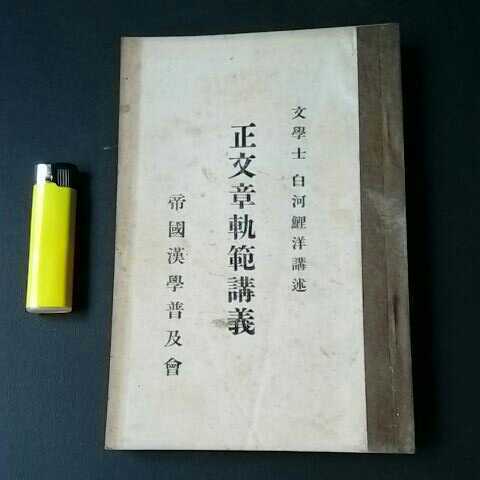 文學士 白河鯉洋講述
正文章軌範講義
帝國漢學普及會